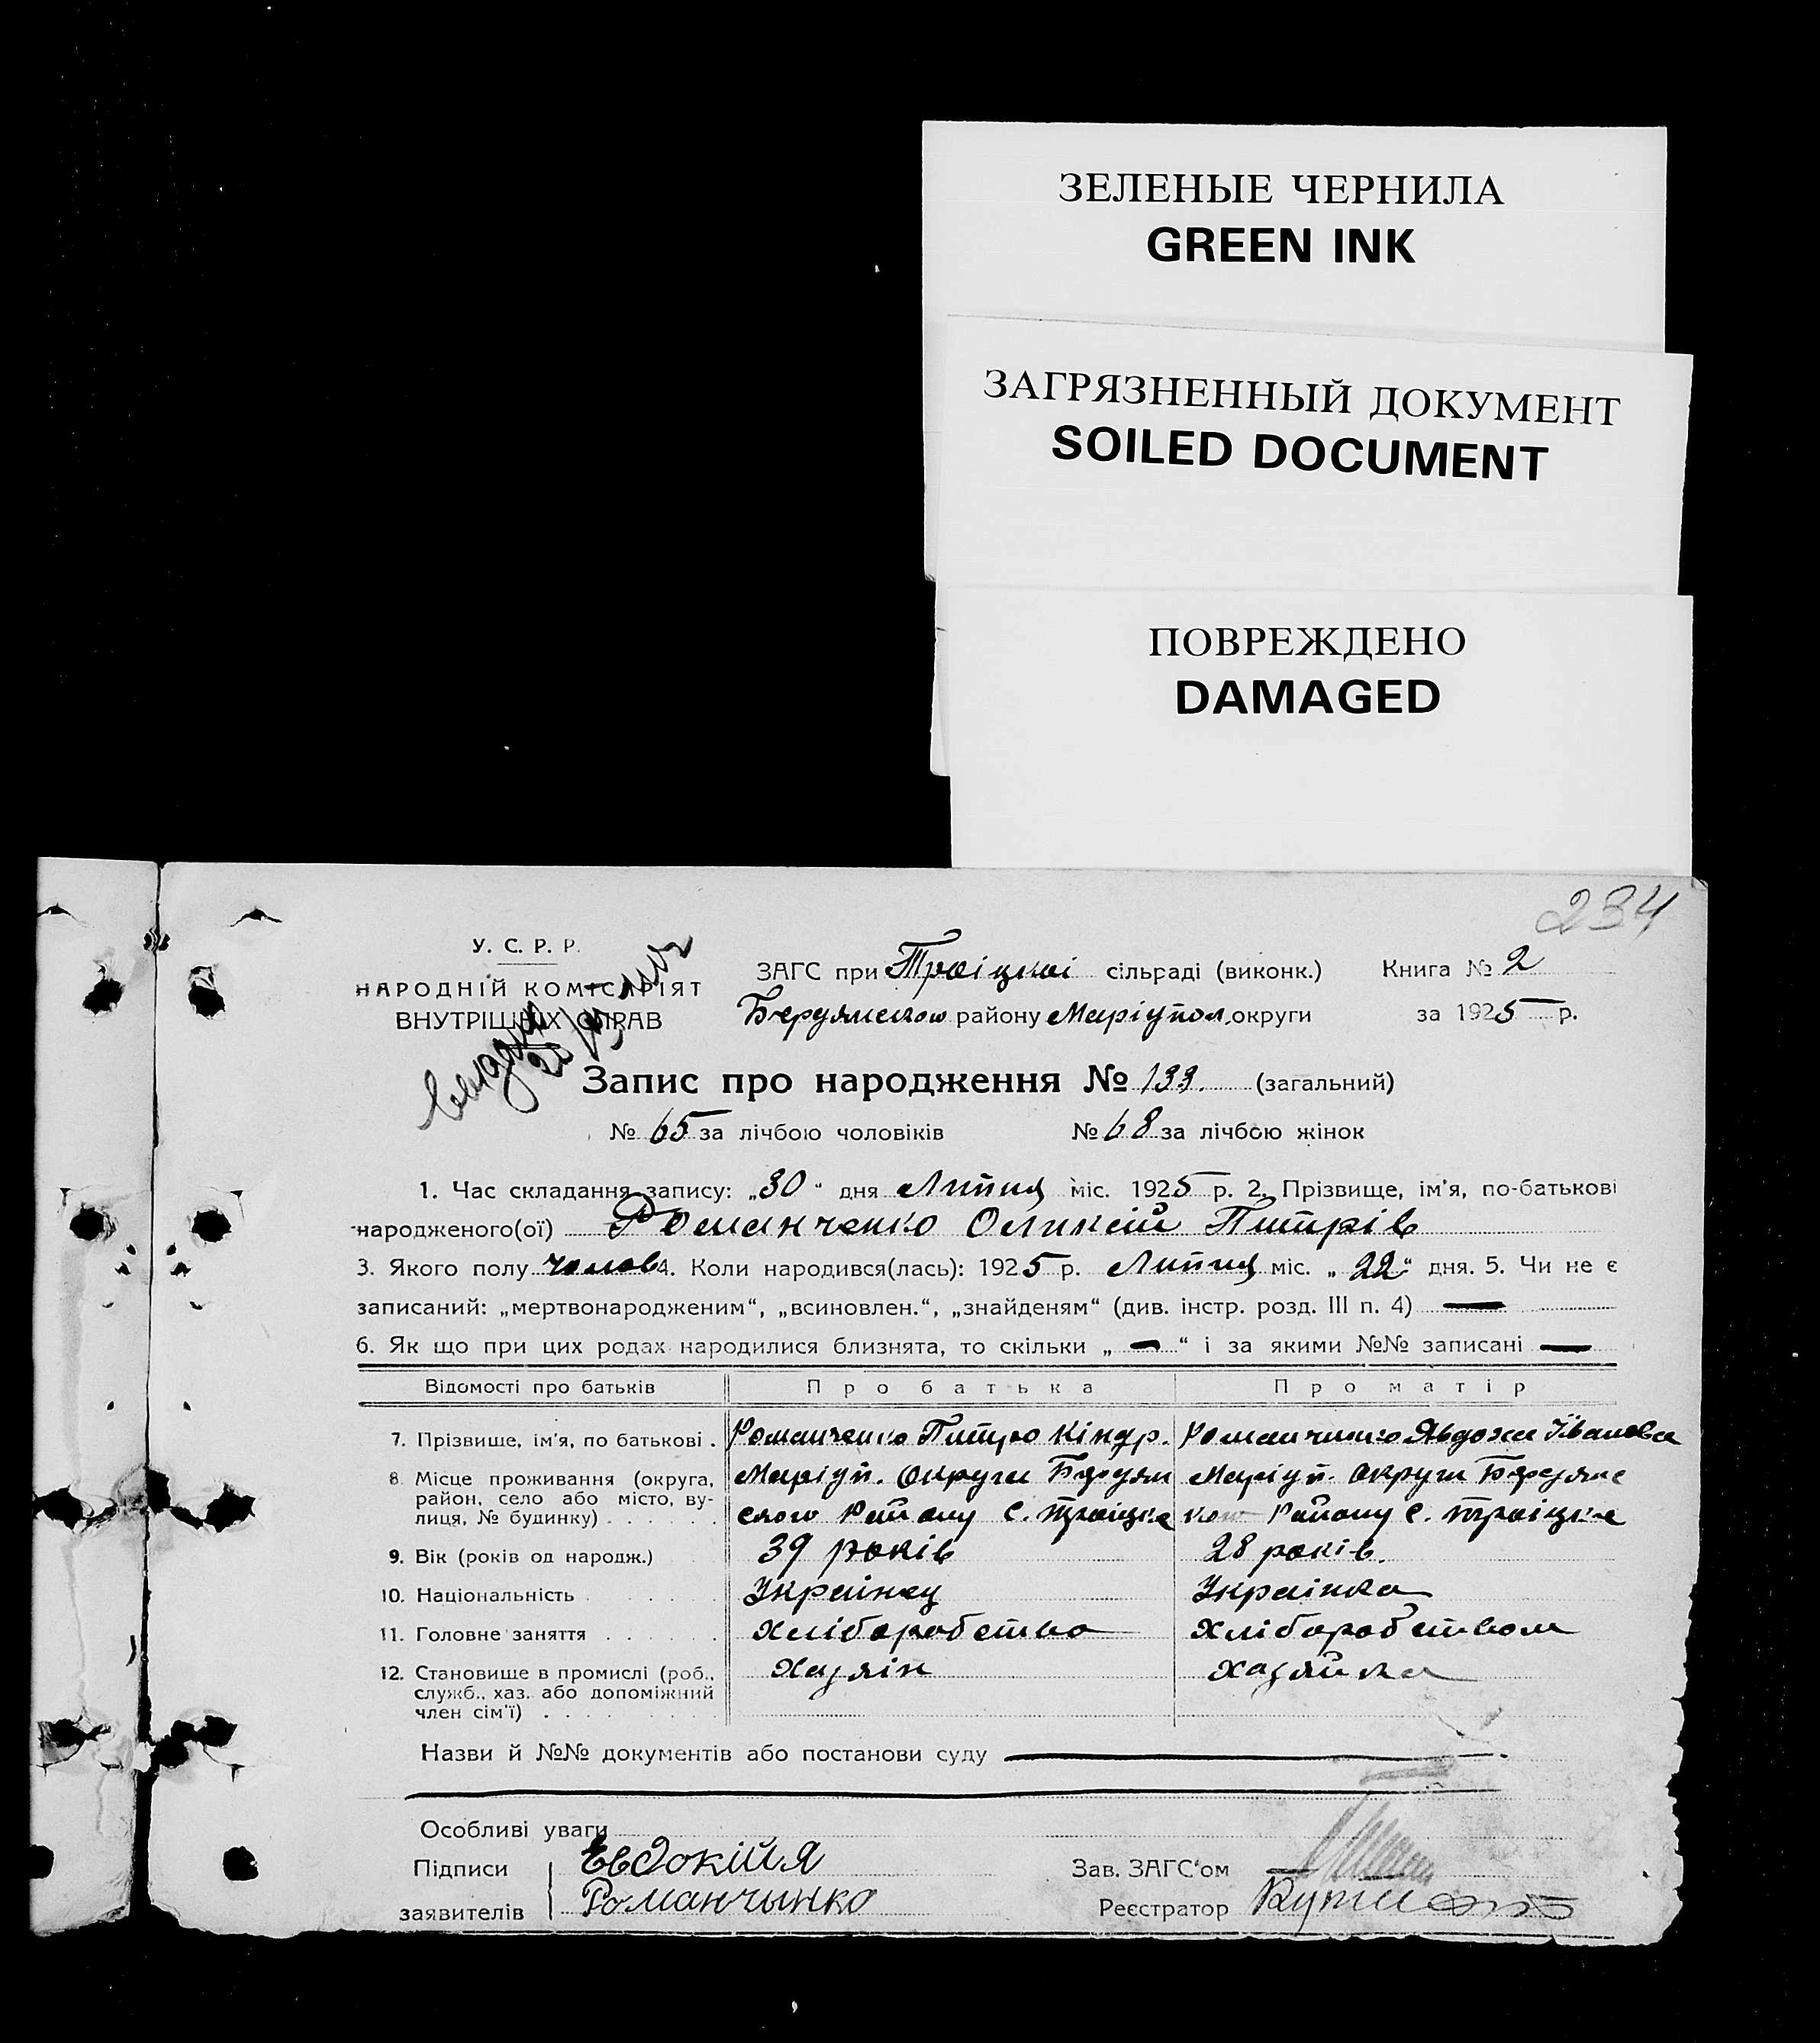 ЗЕЛЕНЫЕ ЧЕРНИЛА
GREEN INK
ЗАГРЯЗНЕННЫЙ ДОКУМЕНТ
SOILED DOCUMENT
ПОВРЕЖДЕНО
DAMAGED
234
У. С. Р. Р.
НАРОДНІЙ КОМІСАРІЯТ
ВНУТРІШНІХ СПРАВ
ЗАГС при Троіцкоі сільраді (виконк.) Книга № 2
Бердянского району Маріупол. округи за 1925 р.
Запис про народження № 133. (загальний)
№ 65 за лічбою чоловіків № 68 за лічбою жінок
1. Час складання запису: „30“ дня Липня міс. 1925 р. 2. Прізвище, ім’я, по-батькові
народженого(ої) Романченко Оликсій Питрів
3. Якого полу чолов 4. Коли народився(лась): 1925 р. Липня міс. „22“ дня. 5. Чи не є
записаний: „мертвонародженим“, „всиновлен.“, „знайденям“ (див. інстр. розд. III п. 4) —
6. Як що при цих родах народилися близнята, то скільки „—“ і за якими №№ записані —
Відомості про батьків Про батька Про матір
7. Прізвище, ім’я, по батькові . Романченко Питро Кіндр. Романчинко Явдоха Іванова
8. Місце проживання (округа, Маріуп. Округи Бердян Маріуп. Округи Бердянс
район, село або місто, ву-
лиця, № будинку) . . . . . . ского Району С. Троіцке кого Району С. Троіцке
9. Вік (років од народж.) 39 років 28 років.
10. Національність . . . . . . Украінец Украінка
11. Головне заняття . . . . . . Хліборобство Хліборобством
12. Становище в промислі (роб., Хазяін Хазяйка
служб., хаз. або допоміжний
член сім’ї) . . . .
Назви й №№ документів або постанови суду
Особливі уваги
Підписи Евдокійя Зав. ЗАГС‘ом
заявителів Романчынко Реєстратор